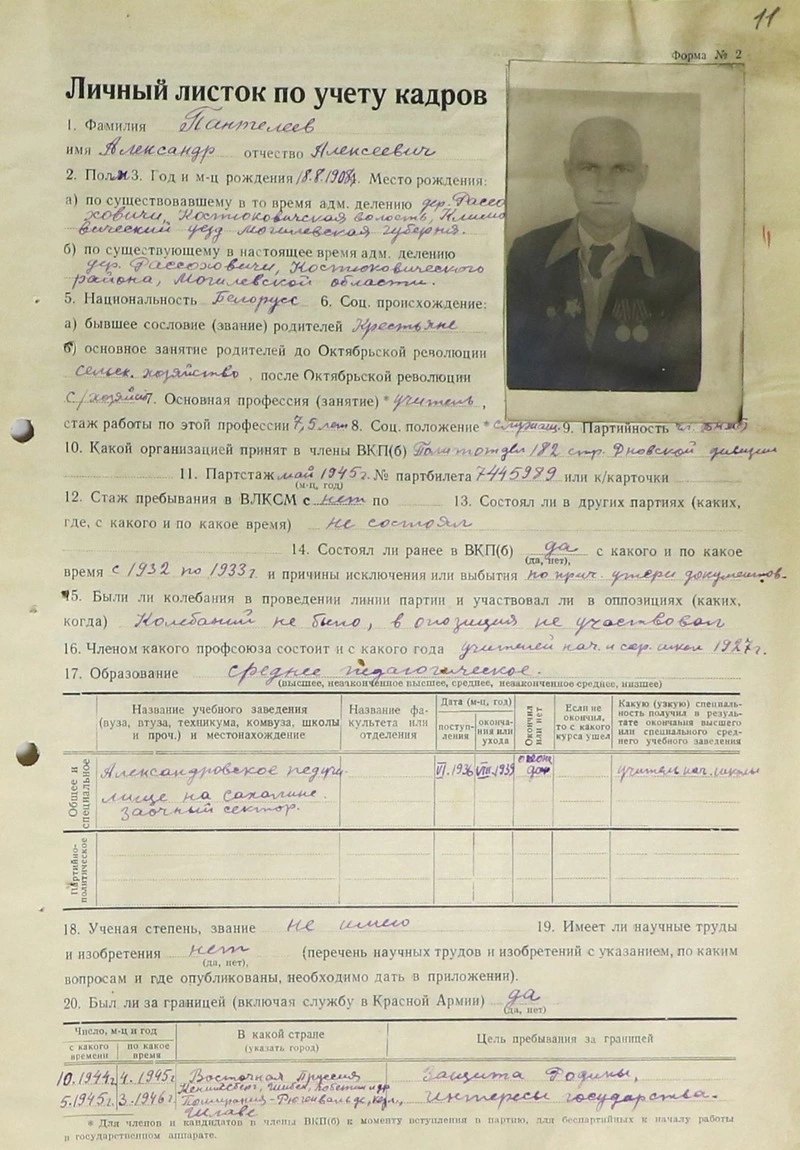 11
Форма № 2
Личный листок по учету кадров
1. Фамилия Пантелеев
имя Александр отчество Алексеевич
2. Пол М 3. Год и м-ц рождения 18.8.1908г. Место рождения:
а) по существовавшему в то время адм. делению дер. Рассо
ховичи, Костюковичская волость, Климо
вический уезд Могилевская губерния.
б) по существующему в настоящее время адм. делению
дер. Рассоховичи, Костюковического
района, Могилевской области.
5. Национальность Белорусс 6. Соц. происхождение:
а) бывшее сословие (звание) родителей Крестьяне
б) основное занятие родителей до Октябрьской революции
сельск. хозяйство, после Октябрьской революции
с/хозяйст 7. Основная профессия (занятие) * учитель,
стаж работы по этой профессии 7,5 лет 8. Соц. положение * служащ. 9. Партийность чл. ВКП(б)
10. Какой организацией принят в члены ВКП(б) Политотдел 182 стр. Дновской дивизии
11. Партстаж май 1945г. № партбилета 7445989 или к/карточки
(м-ц, год)
12. Стаж пребывания в ВЛКСМ с нет по 13. Состоял ли в других партиях (каких,
где, с какого и по какое время) не состоял
14. Состоял ли ранее в ВКП(б) да с какого и по какое
(да, нет),
время с 1932 по 1933г и причины исключения или выбытия по прич. утери документов.
15. Были ли колебания в проведении линии партии и участвовал ли в оппозициях (каких,
когда) Колебаний не было, в опозиций не участвовал
16. Членом какого профсоюза состоит и с какого года учителей нач. и ср. школ 1927г.
17. Образование среднее педагогическое.
(высшее, незаконченное высшее, среднее, незаконченное среднее, низшее)
Название учебного заведения (вуза, втуза, техникума, комвуза, школы и проч.) и местонахождение
Название факультета или отделения
Дата (м-ц, год)
поступления
окончания или ухода
Окончил или нет
Если не окончил, то с какого курса ушел
Какую (узкую) специальность получил в результате окончания высшего или специального среднего учебного заведения
Общее и специальное
Александровское педучи VI.1936 VIII.1939 окон учитель нач. школы
лище на Сахалине.
Заочный сектор.
Партийно-политическое
18. Ученая степень, звание не имею 19. Имеет ли научные труды
и изобретения нет (перечень научных трудов и изобретений с указанием, по каким
(да, нет),
вопросам и где опубликованы, необходимо дать в приложении).
20. Был ли за границей (включая службу в Красной Армии) да
(да, нет)
Число, м-ц и год
с какого времени
по какое время
В какой стране
(указать город)
Цель пребывания за границей
10.1944г. 4.1945г Восточная Пруссия Защита Родины,
5.1945г 3.1946г Померания - Интересы государства.
Шлаве
* Для членов и кандидатов в члены ВКП(б) к моменту вступления в партию, для беспартийных к началу работы
в государственном аппарате.